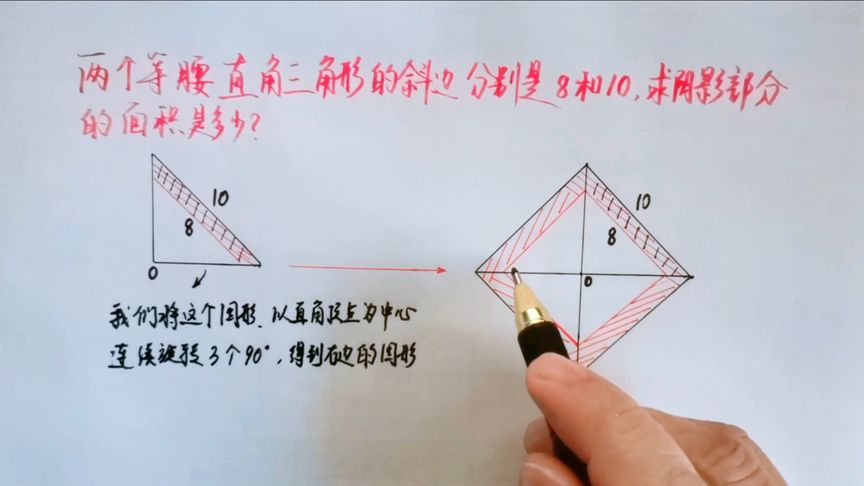 两个等腰直角三角形的斜边分别是8和10,求阴影部分
的面积是多少?
10
8
0
10
8
0
我们将这个图形,以直角顶点为中心
连续旋转3个90°,得到右边的图形